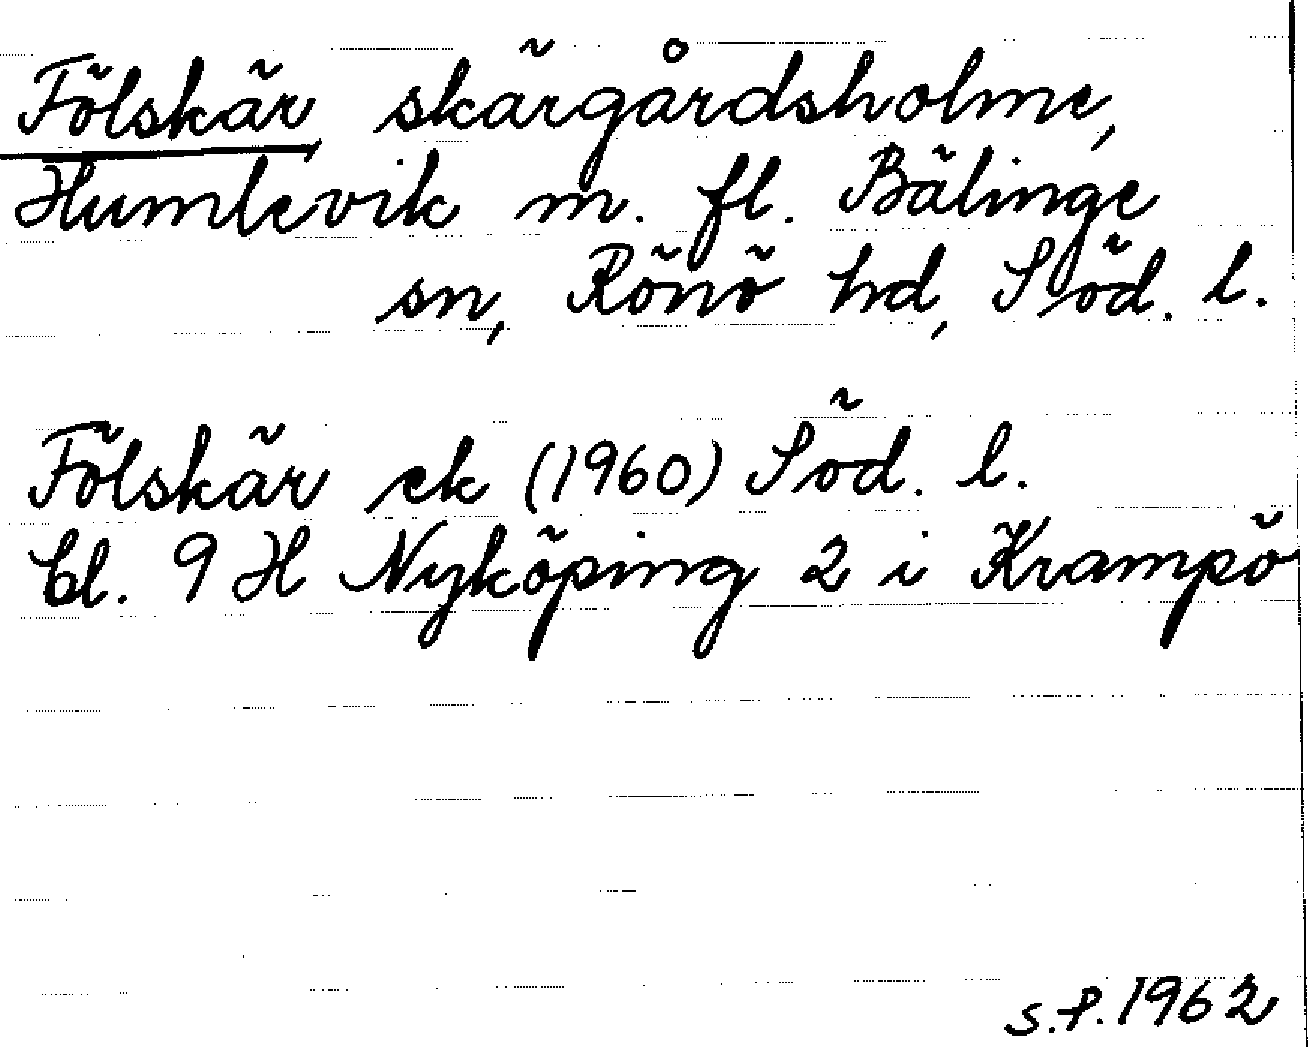 Fölskär, skärgårdsholme,
Humlevik m. fl. Bälinge
sn, Rönö hd, Söd. l.
Fölskär ek (1960) Söd. l.
bl. 9 H Nyköping 2 i Krampö
S.P. 1962